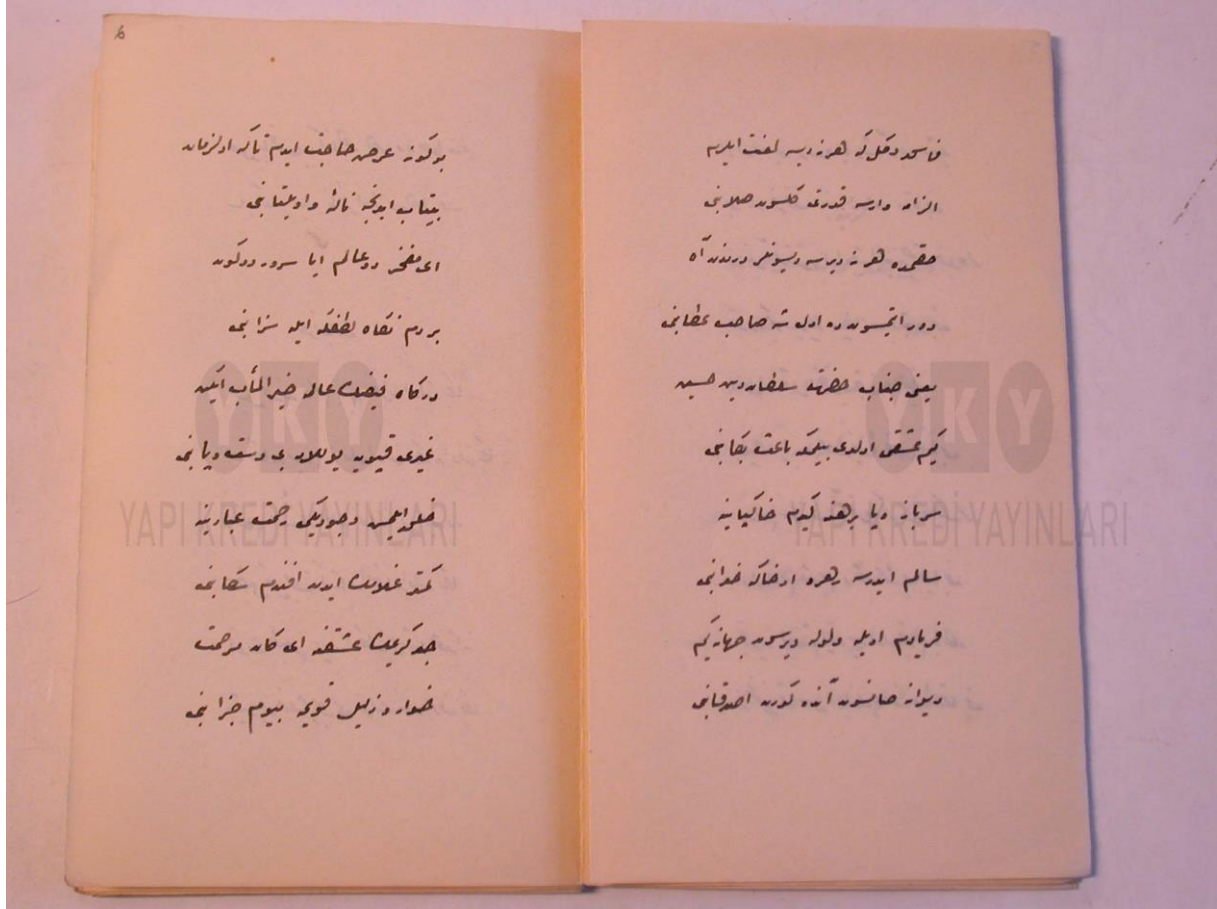 هر نه ديسه لعنت ايلرم
الزام وارسه قدرتى كلسون صلابنى
حقمده هر نه ديرسه ديسونلر درندن آه
دور اتميسون ده اول شه صاحب عطابنى
يعنى جناب حضرت سلطان دين حسين
كيم عشقى اولدى بيلمكه باعث بكابنى
سرباز وپا برهنه كيدم خاكپاينه
سالم ايدرسه زهره او خاكه خدابنى
فريادم اويله ولوله ويرسون جهانه كيم
ديوانه صانسون آنده كورن اصدقابنى
بوكونه عرض حاجت ايدم تاكه اولزمان
بيتاب ايدنجه نالۀ واويلتابنى
اى مفخر دو عالم ايا سرور دوكون
بر دم نكاه لطفكه ايله سزابنى
دركاه فيضك عالمه خير المآب ايكن
غيرى قپويه يوللادى بى دست وپابنى
خلق ايلمش وجوديكى رحمت عبادينه
كمتر غلامك ايدن افندم سكابنى
جد كريمك عشقنه اى كان مرحمت
خوار و ذليل قويمه بيوم جزابنى
YKY
YAPI KREDİ YAYINLARI
YKY
YAPI KREDİ YAYINLARI